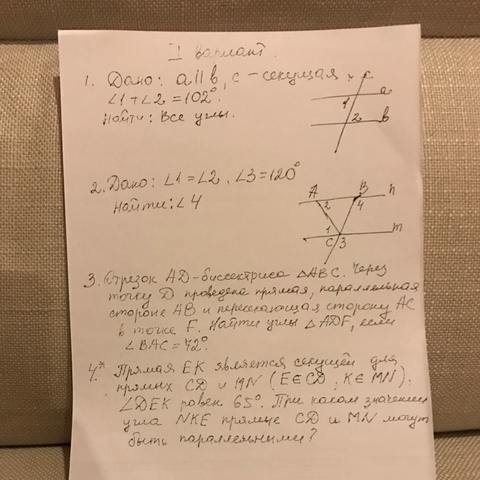 I вариант.
1. Дано: a || b, c - секущая
∠1 + ∠2 = 102°.
Найти: Все углы.
c
a
1
2
b
2. Дано: ∠1 = ∠2, ∠3 = 120°
Найти: ∠4
A
B
n
2
4
1
C
3
m
3. Отрезок AD - биссектриса △ABC. Через
точку D проведена прямая, параллельная
стороне AB и пересекающая сторону AC
в точке F. Найти углы △ADF, если
∠BAC = 72°.
4.* Прямая EK является секущей для
прямых CD и MN (E∈CD, K∈MN).
∠DEK равен 65°. При каком значении
угла NKE прямые CD и MN могут
быть параллельными?